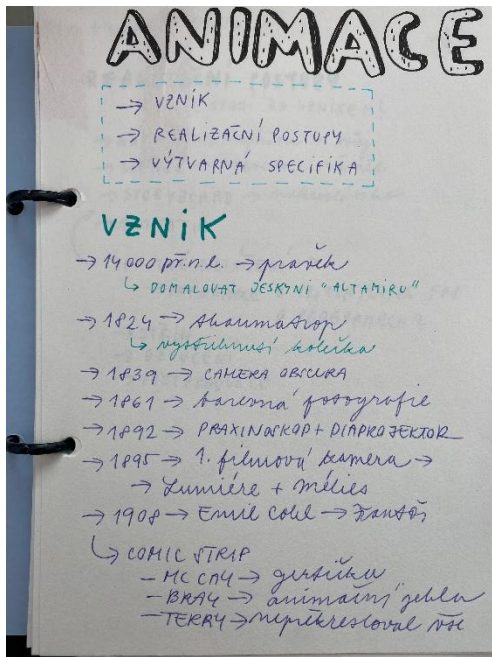 ANIMACE
→ VZNIK
→ REALIZAČNÍ POSTUPY
→ VÝTVARNÁ SPECIFIKA
VZNIK
→ 14000 př.n.l. → pravěk
↳ DOMALOVAT JESKYNI "ALTAMIRU"
→ 1824 → thaumatrop
↳ vystřihnusí kolečka
→ 1839 → CAMERA OBSCURA
→ 1861 → barevná fotografie
→ 1892 → PRAXINOSKOP + DIAPROJEKTOR
→ 1895 → 1. filmová kamera →
→ Lumiére + Mélies
→ 1908 → Emil Cohl → Fantoš
↳ COMIC STRIP
- MC CAY → gertička
- BRAY → animační
- TERRY → nepřekresloval vše